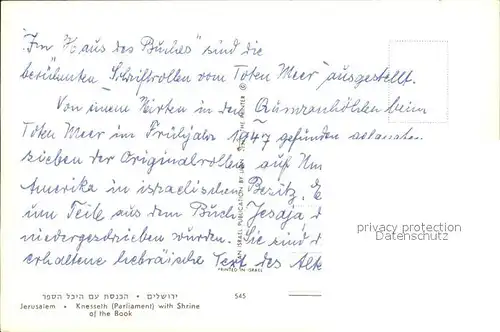 "Im Haus des Buches" sind die
berühmten Schriftrollen vom Toten Meer ausgestellt.
Von einem Hirten in den Qumranhöhlen beim
Toten Meer im Frühjahr 1947 gefunden
sieben der Originalrollen auf
Amerika in israelischen Besitz.
um Teile aus dem Buch Jesaja, d
niedergeschrieben wurden. Sie sind d
erhaltene hebräische Text des Alte
privacy protection
watermark
AN ISRAEL PUBLICATION BY
PRINTED IN ISRAEL
ירושלים • הכנסת עם היכל הספר
545
Jerusalem • Knesseth (Parliament) with Shrine
of the Book